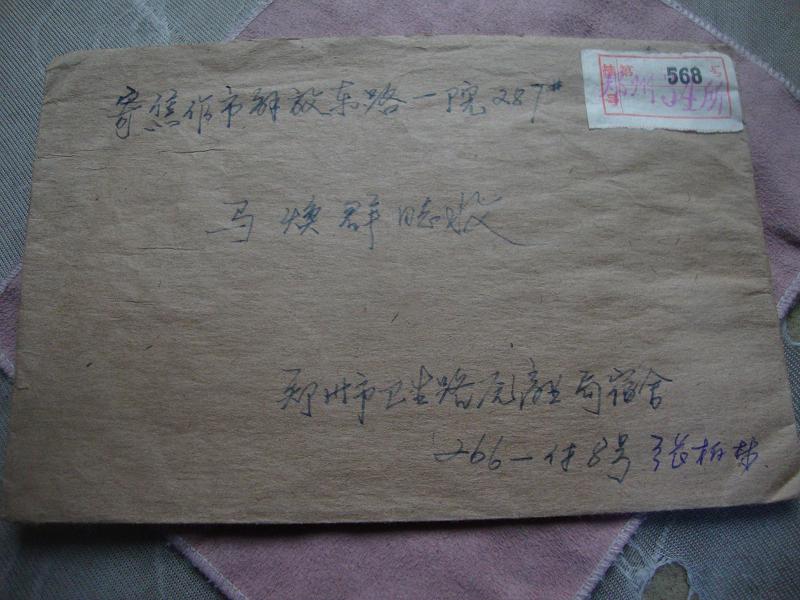 第 568 号
郑州
寄焦作市解放东路一院287#
马焕群 收
郑州市卫生路 局宿舍
266-付8号 张柏林